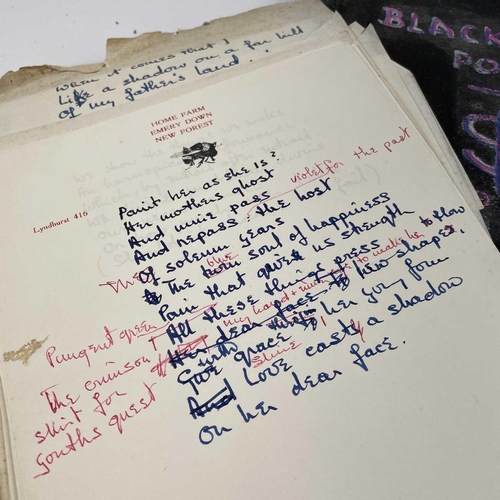 When it comes that I
Like a shadow on a far hill
Of my father's land . .
BLACK
PO
HOME FARM
EMERY DOWN
NEW FOREST
Lyndhurst 416
Paint her as she is?
Her mothers ghost
And mine pass violet for the past
And repass the host
Of solemn years
The blue soul of happiness
Pain that give us strength to flow
All these things press
my hand + to make her
Her dear face low shapes,
her young form
Give grace
shine
And Love casts a shadow
On her dear face.
Pungent green
The crimson
skirt for
youths quest